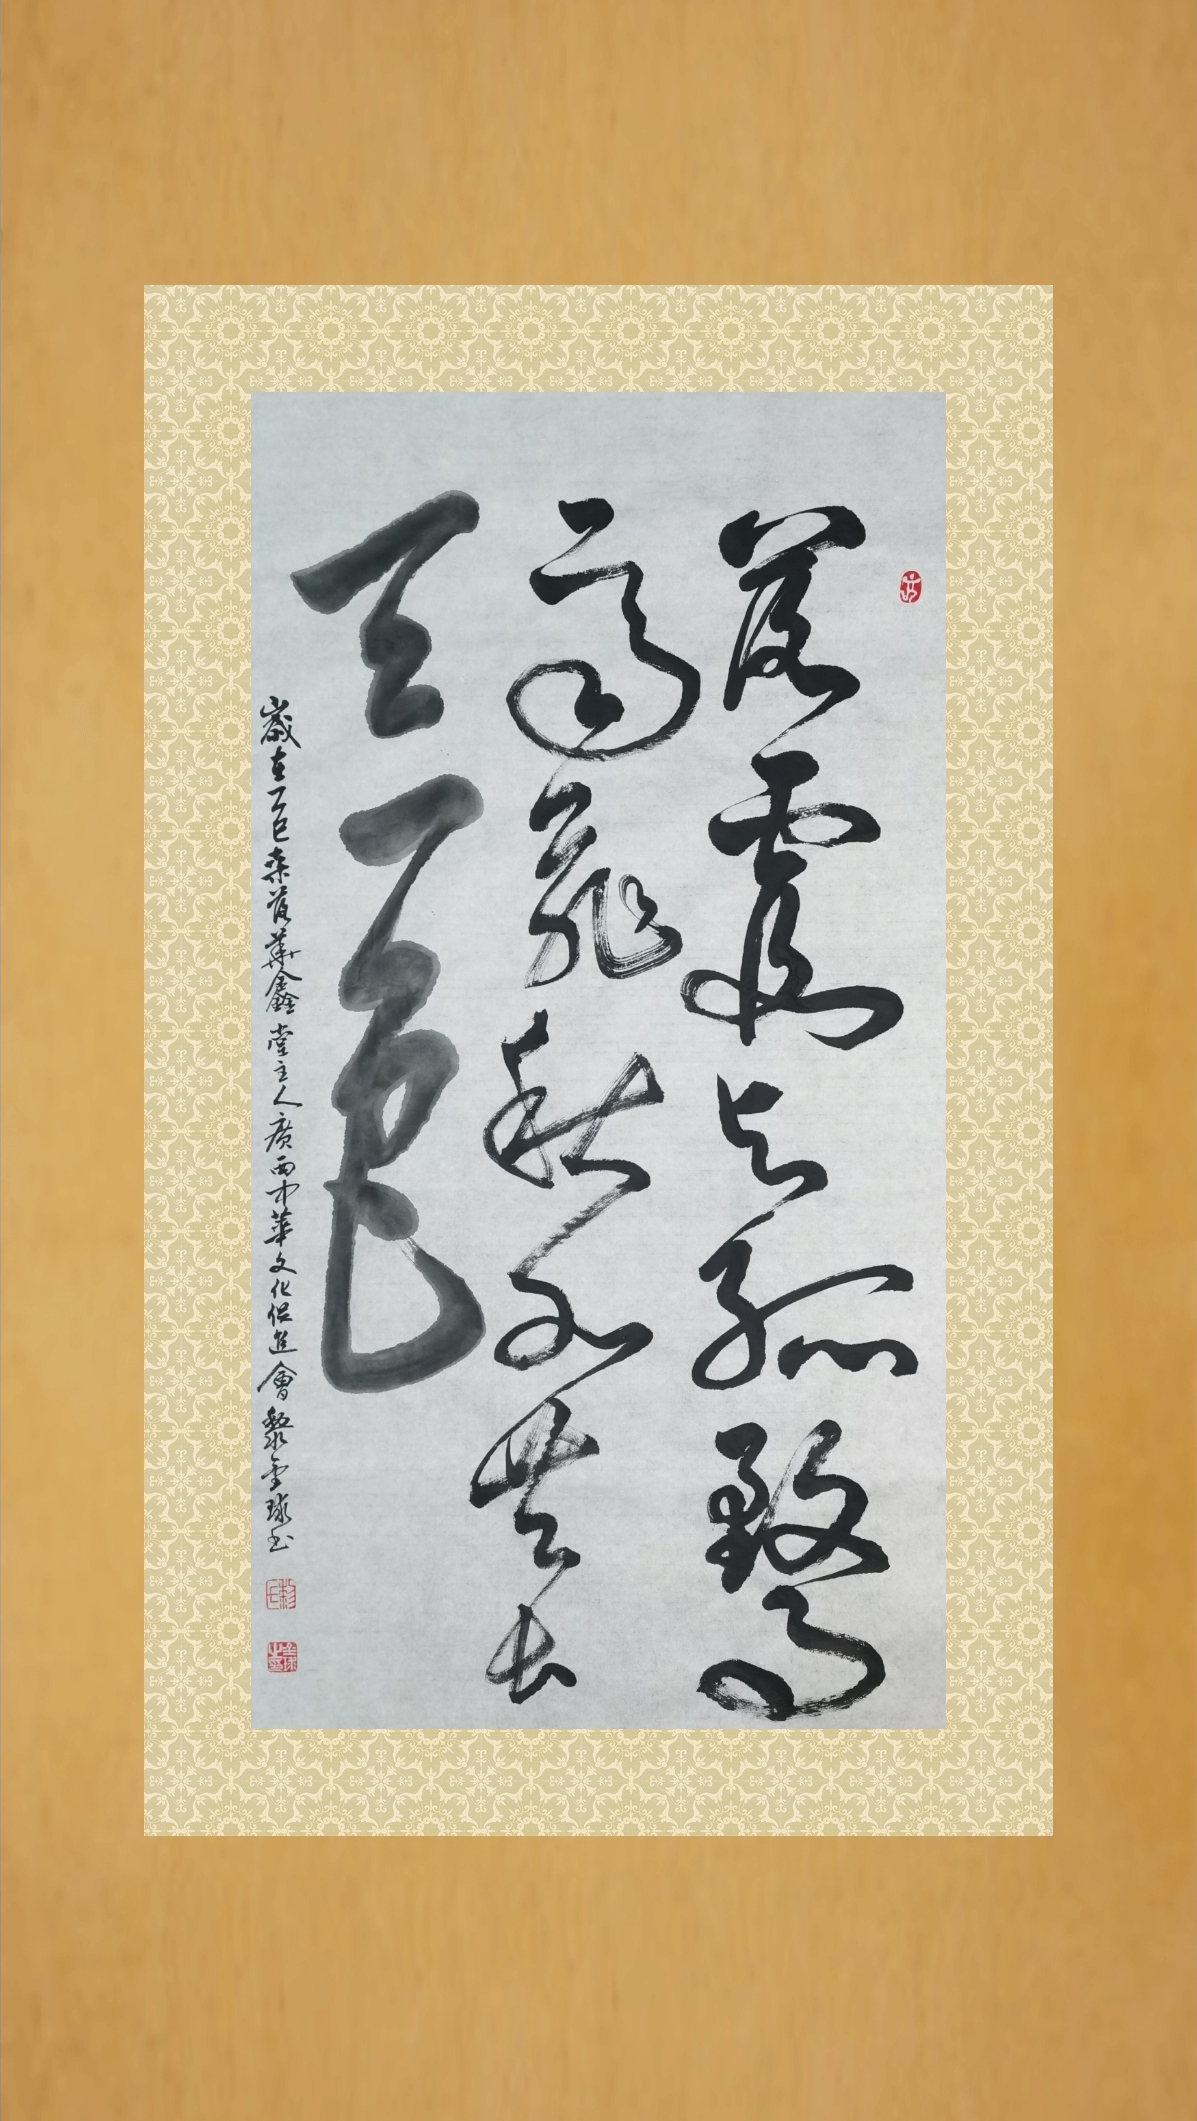 落霞与孤鶩
齊飛秋水共長
天一色
歲在乙巳華鑫堂主人廣西中華文化促進會黎金球书